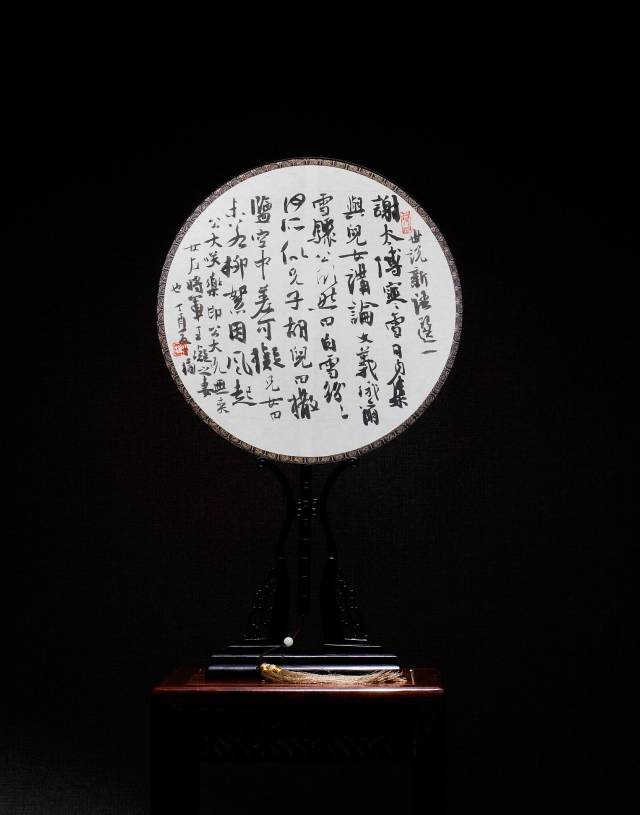 世说新语選一
謝太傅寒雪日内集
與兒女講論文義俄而
雪驟公欣然曰白雪紛〻
何所似兄子胡兒曰撒
鹽空中差可擬兄女曰
未若柳絮因風起
公大笑樂即公大兄無奕
女左將軍王凝之妻
也 丁酉